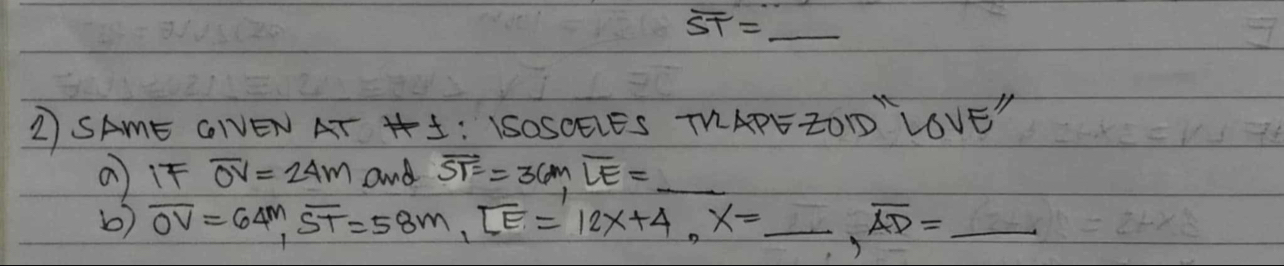 S̅T̅ = ___
2) SAME GIVEN AT #1: ISOSCELES TRAPEZOID "LOVE"
a) IF O̅V̅ = 24m and S̅T̅ = 36m, L̅E̅ = ___
b) O̅V̅ = 64m, S̅T̅ = 58m, L̅E̅ = 12X+4, X= ___, A̅D̅ = ___